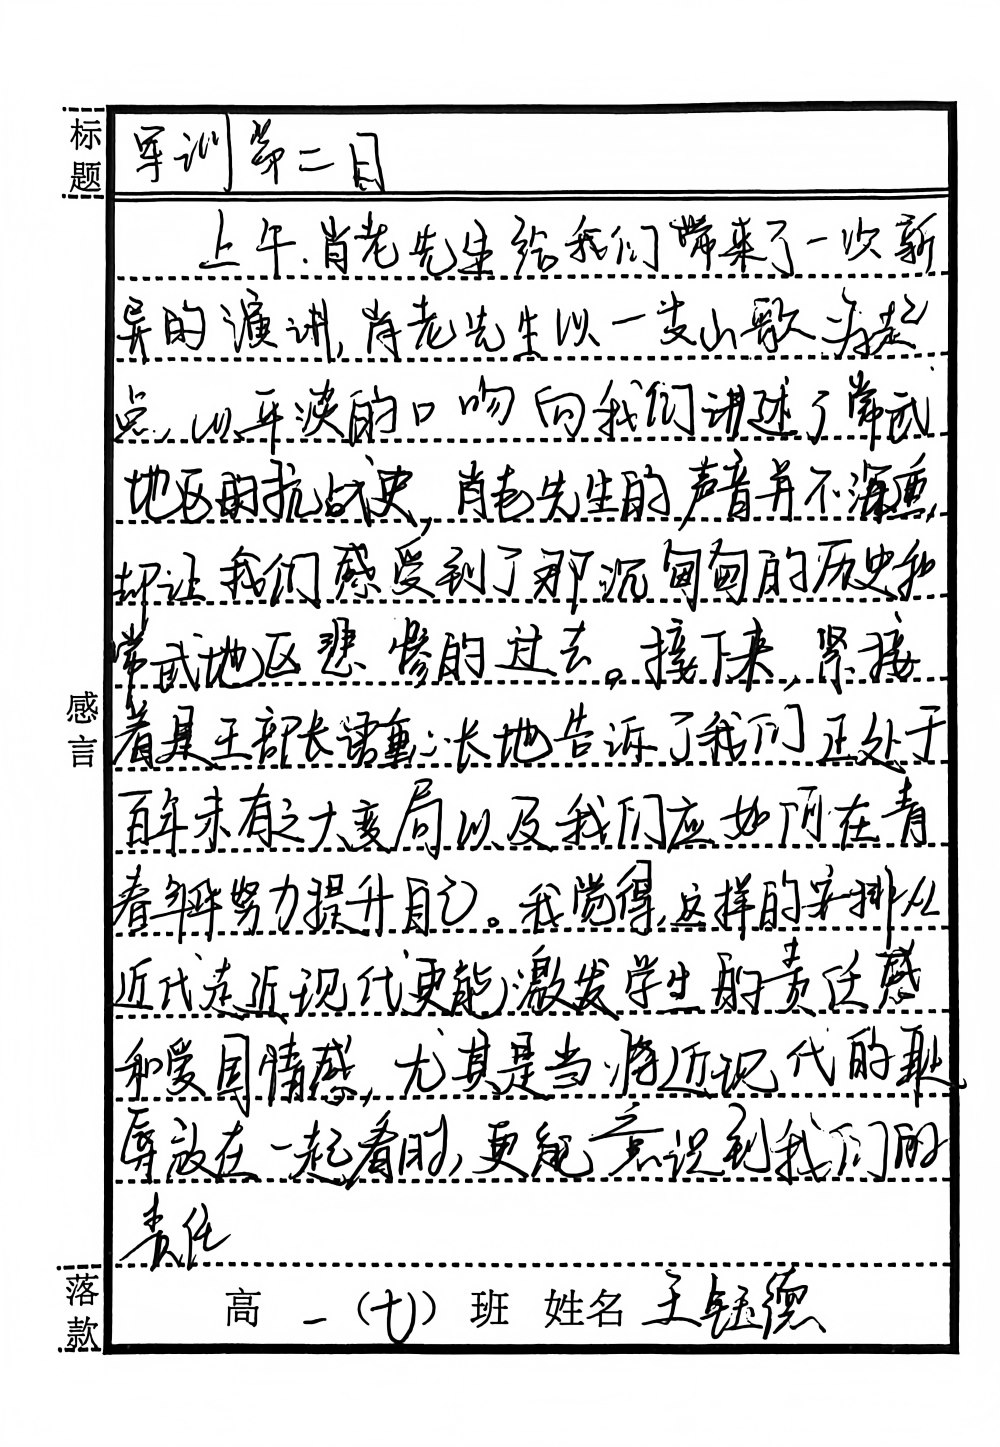 标题
军训第二日
上午,肖老先生给我们带来了一次新
异的演讲,肖老先生以一支山歌为起
点,以平淡的口吻向我们讲述了常武
地区的抗战史,肖老先生的声音并不深重,
却让我们感受到了那沉甸甸的历史和
常武地区悲惨的过去。接下来,紧接
着是王部长语重心长地告诉了我们正处于
百年未有之大变局以及我们应如何在青
春年华努力提升自己。我觉得,这样的安排从
近代走近现代更能激发学生的责任感
和爱国情感,尤其是当将近现代的耻
辱放在一起看时,更能意识到我们的
责任
感言
落款
高一(七)班 姓名 王钰德